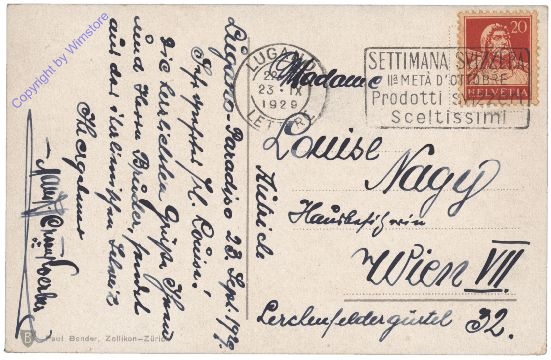 Copyright by Wimstore
Lugano-Paradiso 23. Sept. 1929.
Louise!
Die herzlichsten Grüße Ihnen
und Herrn Bruder, sendet
aus der italienischen Schweiz
Ihr ergebener
Paul Bender, Zollikon-Zürich
LUGANO
23 - IX
1929
LETTERE
SETTIMANA SVIZZERA
IIª METÀ D'OTTOBRE
Prodotti svizzeri
Sceltissimi
20
HELVETIA
Madame
Louise Nagy
Hausbesitzerin
Wien VII.
Lerchenfeldergürtel 32.